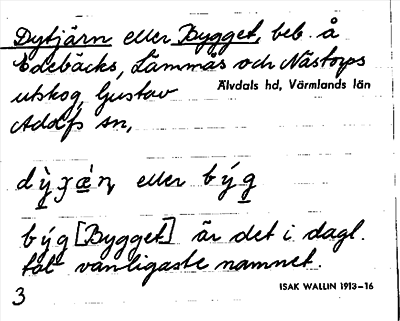 Dytjärn eller Bygget, beb. å
Edebäcks, Lämmäs och Nästorps
utskog, Gustav
Älvdals hd, Värmlands län
Adolfs sn,
eller
[Bygget] är det i dagl.
tal vanligaste namnet.
3
ISAK WALLIN 1913–16